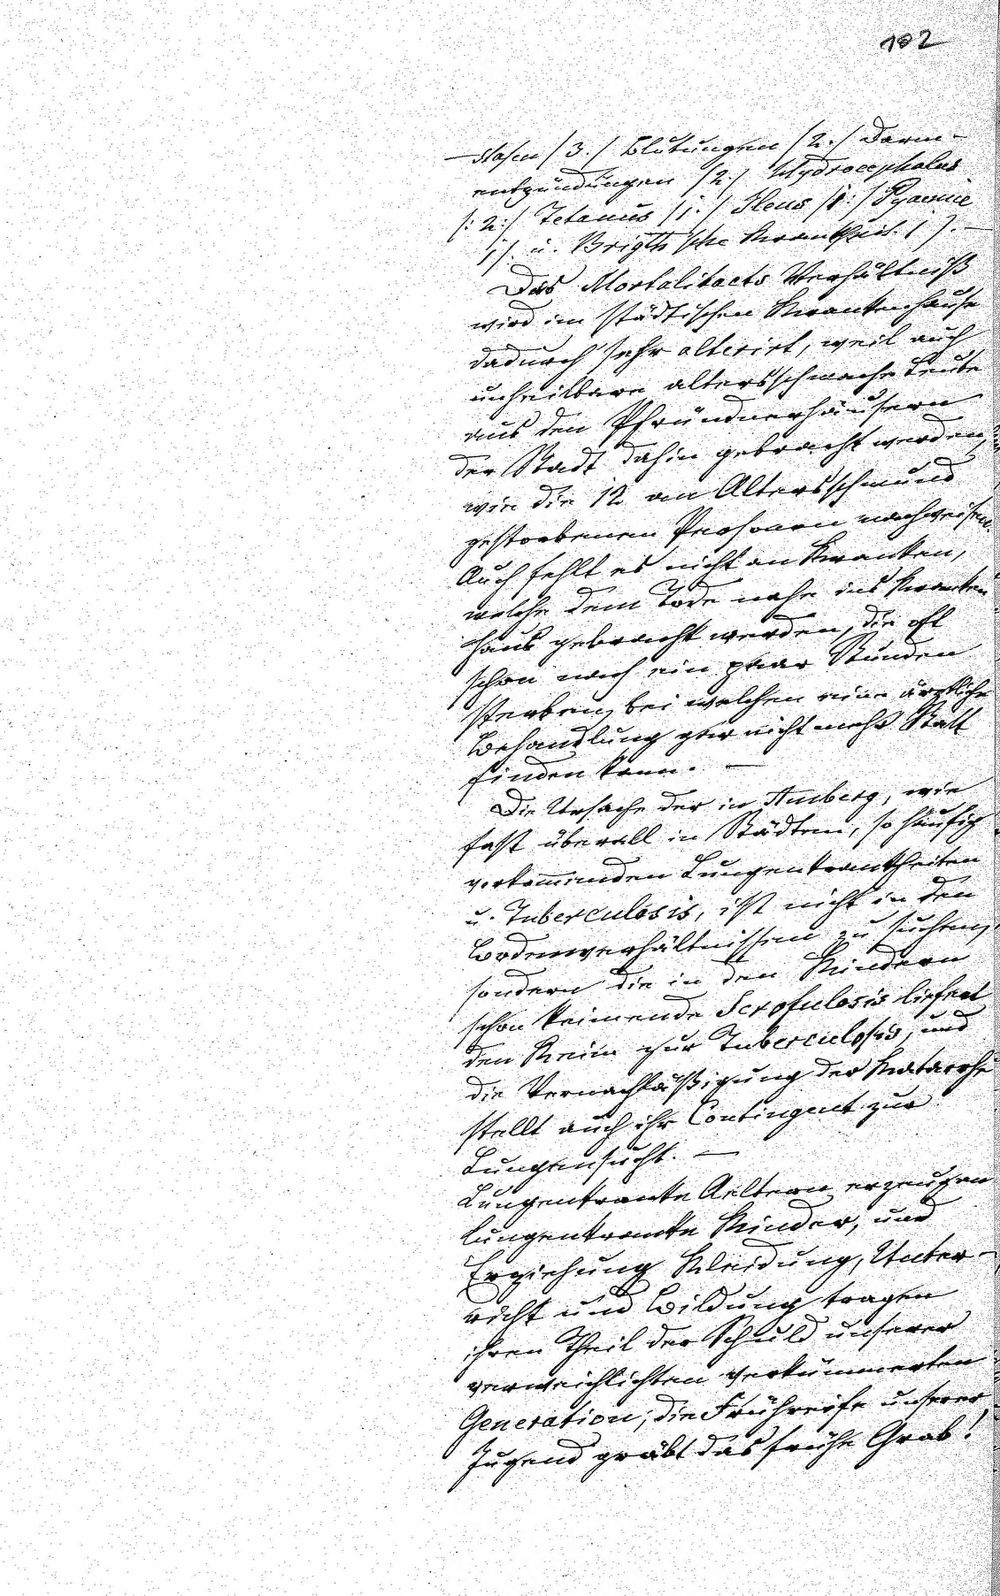 102
(3.) Blutungen (2.) Darm-
entzündungen (2.) Hydrocephalus
(: 2:) Tetanus (1.) Ileus (1:) Pyaemie
1). u. Brigth'sche Krankheit 1). —
Das Mortalitaets Verhältniß
wird im städtischen Krankenhause
dadurch sehr alterirt, weil auch
unheilbare altersschwache Leute
aus den Pfründnerhäusern
der Stadt dahin gebracht werden,
wie die 12 an Altersschwund
gestorbenen Personen nachweisen.
Auch fehlt es nicht an Kranken,
welche dem Tode nahe ins Kranken
haus gebracht werden, die oft
schon nach ein paar Stunden
sterben, bei welchen eine ärztliche
Behandlung gar nicht mehr Statt
finden kann. —
Die Ursache der in Amberg, wie
fast überall in Städten, so häufig
vorkommenden Lungenkrankheiten
u. Tuberculosis, ist nicht in den
Bodenverhältnissen zu suchen,
sondern die in den Kindern
schon keimende Scrofulosis liefert
den Keim zur Tuberculosis, und
die Vernachläßigung der Katarrhe
stellt auch ihr Contingent zur
Lungensucht. —
Lungenkranke Aeltern erzeugen
lungenkranke Kinder, und
Erziehung Kleidung, Unter-
richt und Bildung tragen
ihren Theil der Schuld unserer
verweichlichten verkümmerten
Generation; die Frühreife unserer
Jugend gräbt das frühe Grab!